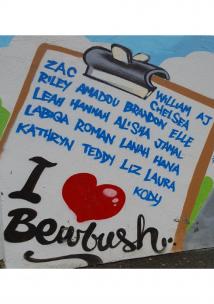 ZAC WILLIAM AJ
RILEY AMADOU BRANDON CHELSEA ELLE
LEAH HANNAH ALISHA JAMAL
LABIQA ROMAN LANAH HAYA
KATHRYN TEDDY LIZ LAURA
KODY
I
Bewbush..